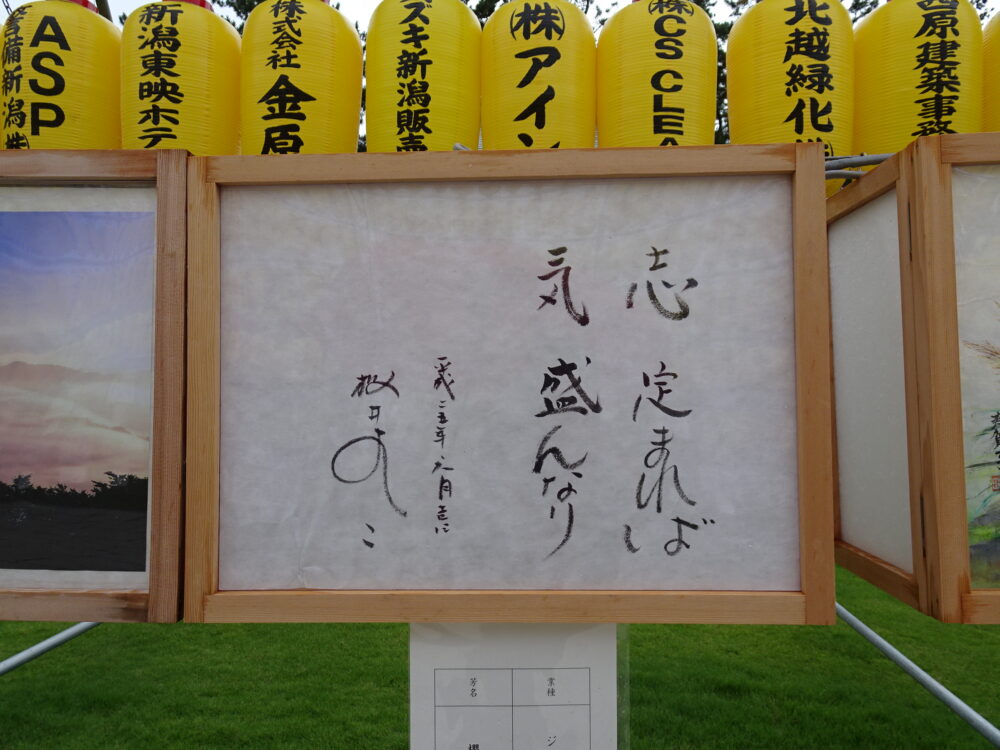 ASP
吉備新潟㈱
新潟東映ホテ
株式会社
金原
ズキ新潟販売
㈱アイン
㈱CS CLEA
北越緑化㈱
西原建築事務
志 定まれば
気 盛んなり
平成二五年六月吉に
桜井よしこ
業種
芳名
ジ
櫻